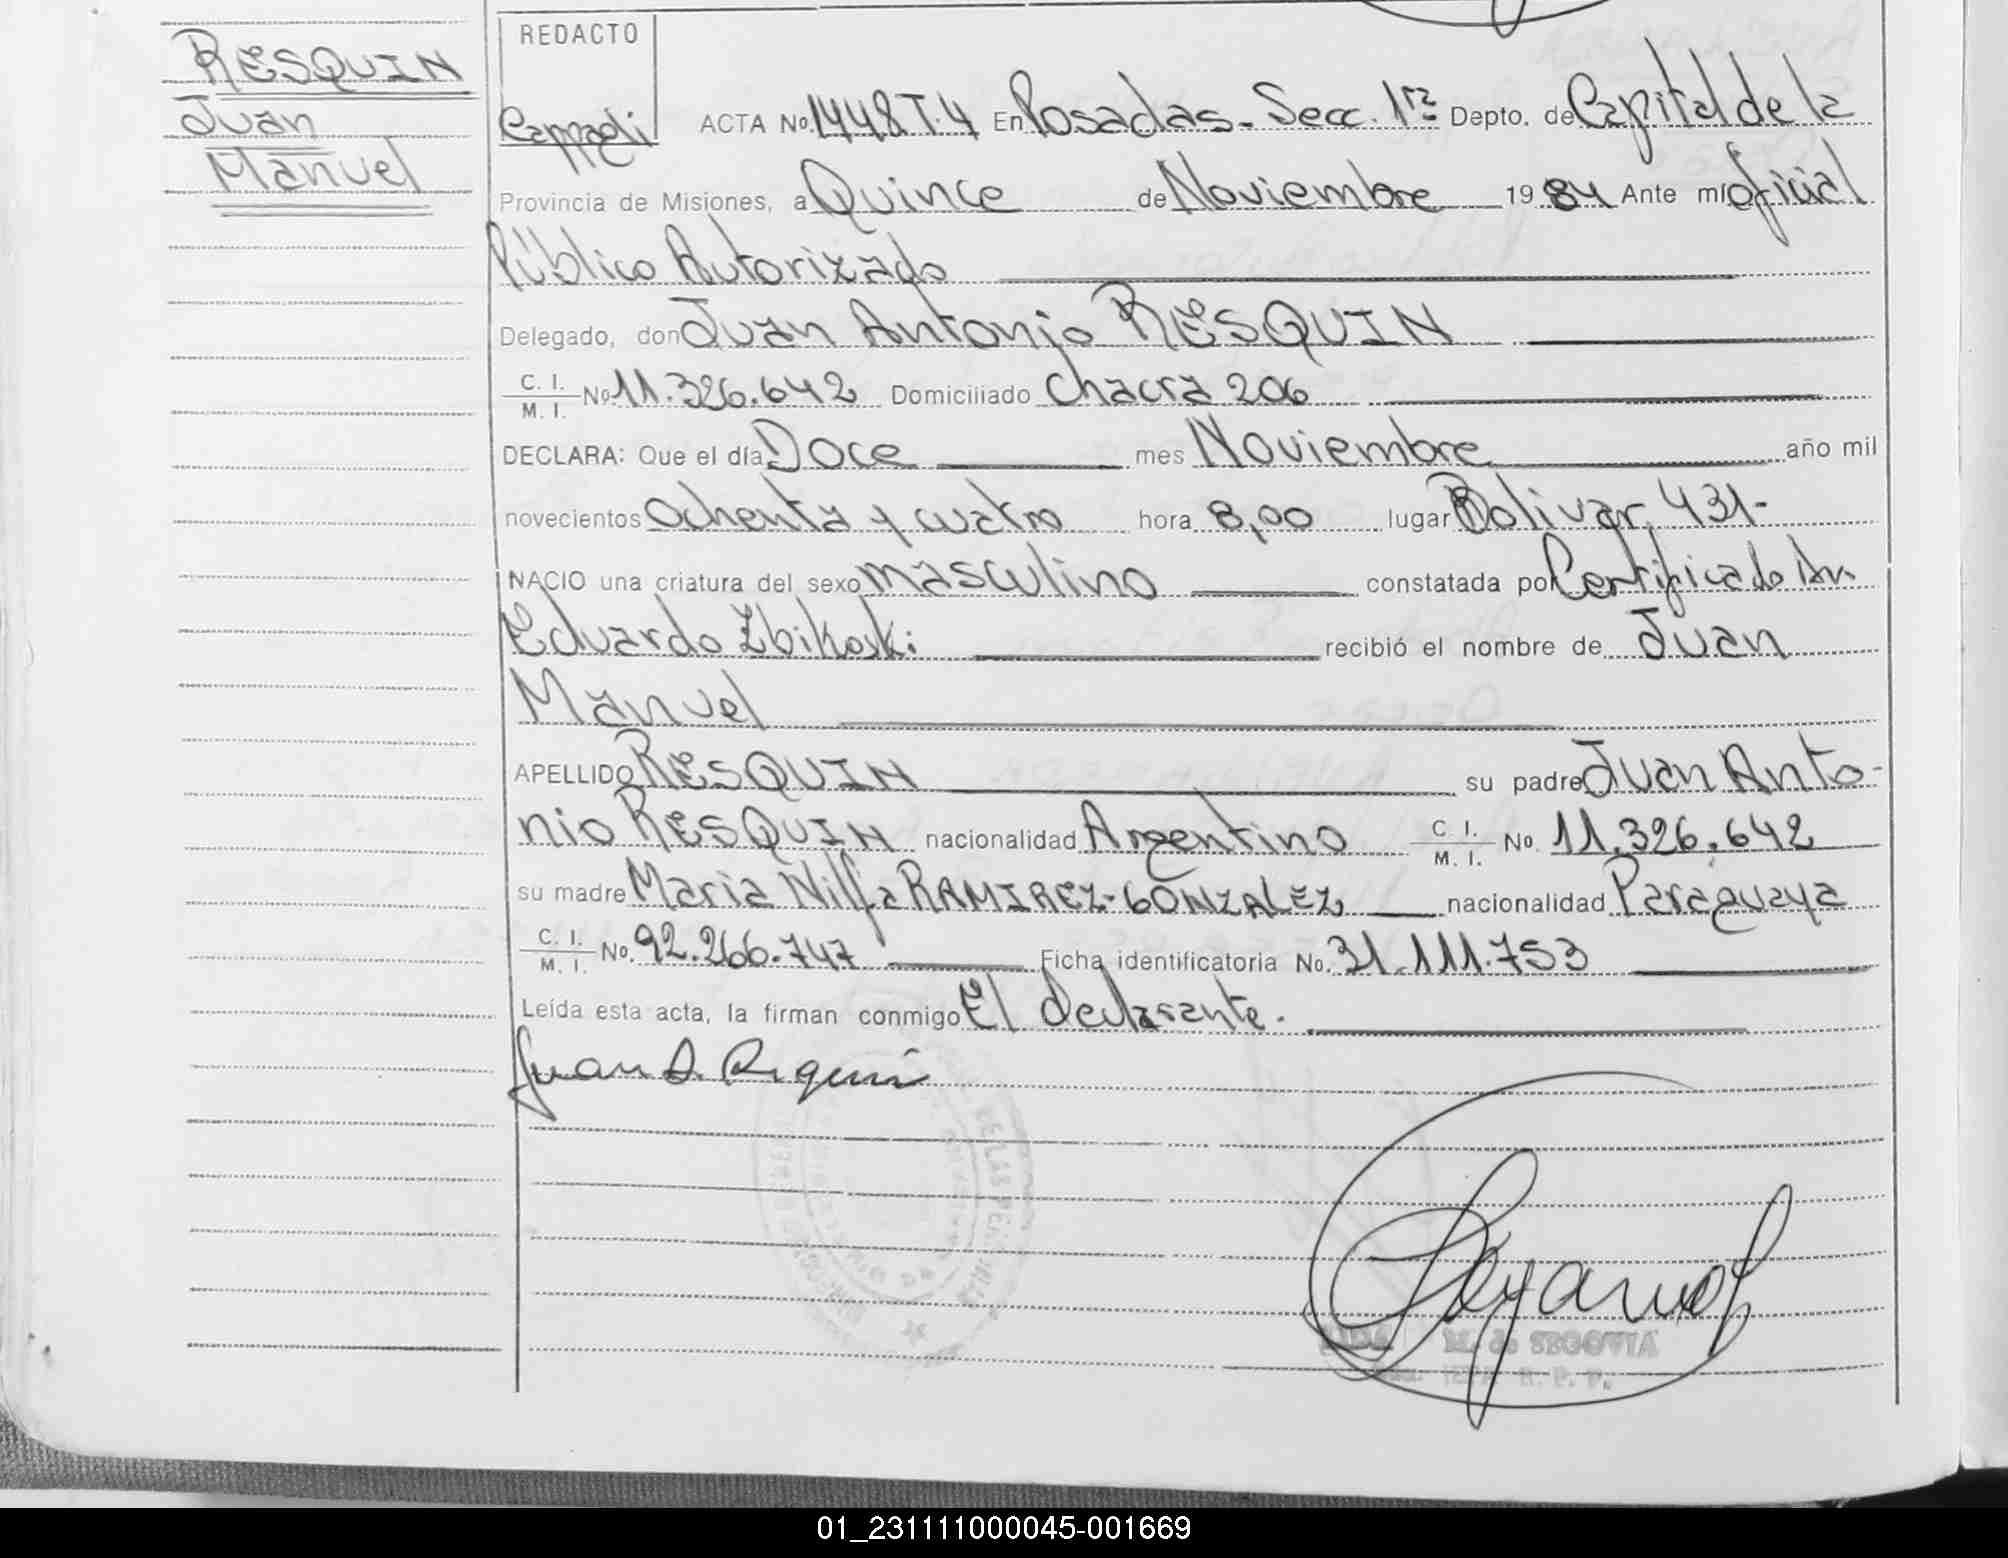 RESQUIN
Juan
Manuel
REDACTO
ACTA No. 1448 T.4 En Posadas - Secc. 1ra Depto. de Capital de la
Provincia de Misiones, a Quince de Noviembre 1984 Ante mí Oficial
Público Autorizado
Delegado, don Juan Antonio RESQUIN
C. I.
M. I. No 11.326.642 Domiciliado Chacra 206
DECLARA: Que el día Doce mes Noviembre año mil
novecientos ochenta y cuatro hora 8,00 lugar Bolivar, 431-
NACIO una criatura del sexo masculino constatada por Certificado
Eduardo Zbikoski recibió el nombre de Juan
Manuel
APELLIDO RESQUIN su padre Juan Anto-
nio RESQUIN nacionalidad Argentino C. I. M. I. No. 11.326.642
su madre Maria Nilfa RAMIREZ-GONZALEZ nacionalidad Paraguaya
C. I.
M. I. No. 92.266.747 Ficha identificatoria No. 31.111.753
Leída esta acta, la firman conmigo El declarante.
Juan A. Resquin
M. de SEGOVIA
01_231111000045-001669